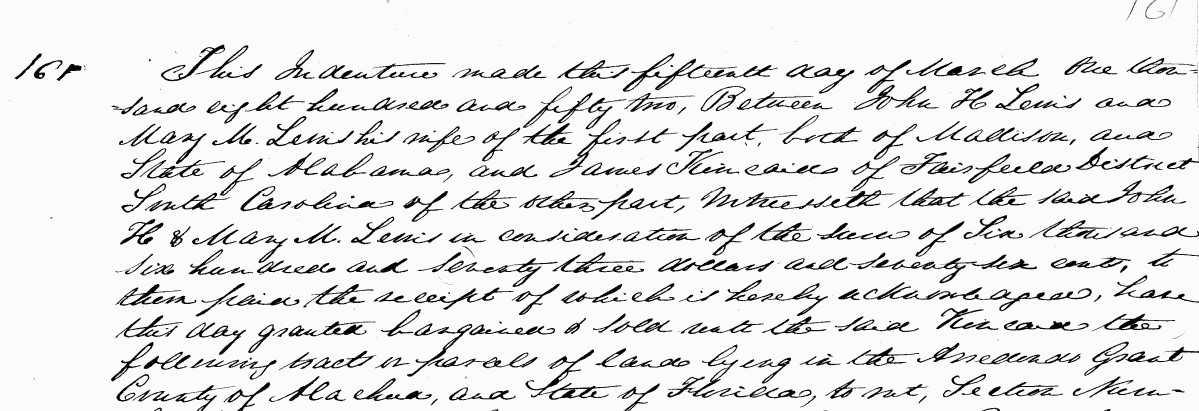 161
16 This Indenture made this fifteenth day of March One thou-
-sand eight hundred and fifty two, Between John H Lewis and
Mary M. Lewis his wife of the first part, both of Madison, and
State of Alabama, and James Kincaid of Fairfield District
South Carolina of the other part, Witnesseth that the said John
H & Mary M. Lewis in consideration of the sum of Six thousand
six hundred and seventy three dollars and seventy six cents, to
them paid, the receipt of which is hereby acknowledged, have
this day granted bargained & sold unto the said Kincaid the
following tracts or parcels of land lying in the Arredondo Grant
County of Alachua, and State of Florida, to wit, Section Num-